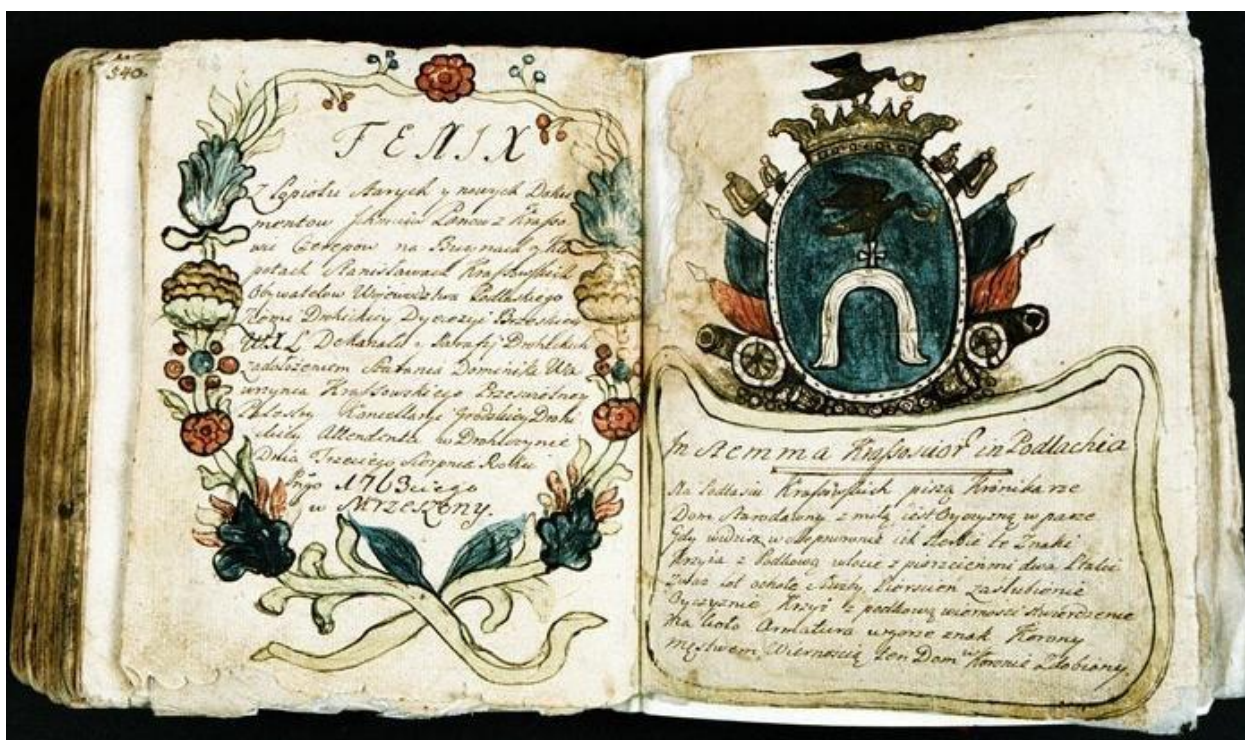 540.
FENIX
z Popiołu Starych y nowych Doku
mentow Ichmciów Panow z Krasso
wa Czerepow na Buynach y Kło
potach Stanisławach Krassowskich
Obywatelow Wojewodztwa Podlaskiego
Ziemi Drohickiey Dyecezyi Brzeskiey
Dekanatu y Parafij Drohickich
zadołożeniem Starania Dominika Wa
wrzynca Krassowskiego Przeswietney
Kancellaryi Grodzkiey Drohi
ckiey Attendenta w Drohiczynie
Dnia Trzeciego Sierpnia Roku
Pńgo 1763ciego
w Skrzeszony.
In stemma Krassovior in Podlachia
Na Podlasiu Krassowskich piszą Kronikarze
Dom Starodawny z miłą iest Oyczyzną w parze
Gdy widzisz w Slepowronie ich Herbie te Znaki
Krzyża z Podkową ulocie z pierscieniem dwa Ptaki
lot ochotę służby Pierscień zaślubienie
Oyczyznie Krzyż z podkową wierności stwierdzenie
Na koło Armatura wgorze znak Korony
męstwem, Wiernością ten Dom w Koronie Zdobiony.